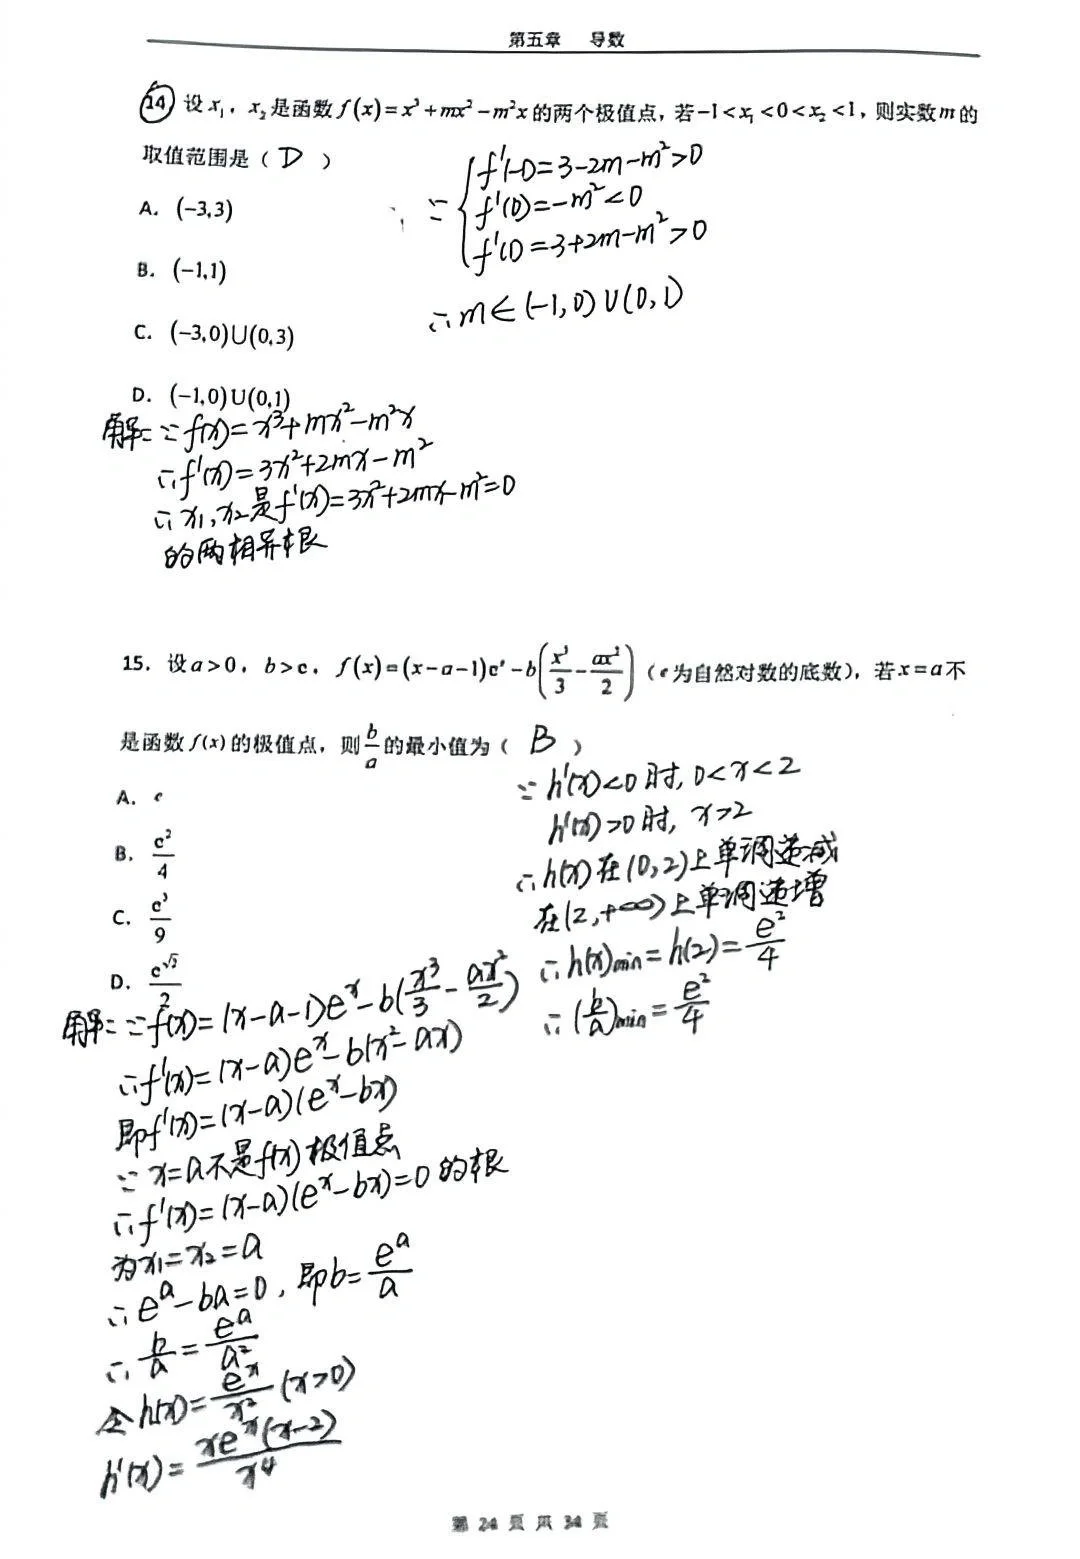 第五章 导数
14 设x₁,x₂是函数f(x)=x³+mx²-m²x的两个极值点,若-1<x₁<0<x₂<1,则实数m的
取值范围是( D )
A. (-3,3)
B. (-1,1)
C. (-3,0)∪(0,3)
D. (-1,0)∪(0,1)
解:∵f(x)=x³+mx²-m²x
∴f'(x)=3x²+2mx-m²
∴x₁,x₂是f'(x)=3x²+2mx-m²=0
的两相异根
∵{f'(-1)=3-2m-m²>0
f'(0)=-m²<0
f'(1)=3+2m-m²>0
∴m∈(-1,0)∪(0,1)
15. 设a>0,b>e,f(x)=(x-a-1)eˣ-b(x³/3-ax²/2)(e为自然对数的底数),若x=a不
是函数f(x)的极值点,则b/a的最小值为( B )
A. e
B. e²/4
C. e³/9
D. e^√2/2
解:∵f(x)=(x-a-1)eˣ-b(x³/3-ax²/2)
∴f'(x)=(x-a)eˣ-b(x²-ax)
即f'(x)=(x-a)(eˣ-bx)
∵x=a不是f(x)极值点
∴f'(x)=(x-a)(eˣ-bx)=0的根
为x₁=x₂=a
∴eᵃ-ba=0,即b=eᵃ/a
∴b/a=eᵃ/a²
令h(x)=eˣ/x²(x>0)
h'(x)=xeˣ(x-2)/x⁴
∵h'(x)<0时,0<x<2
h'(x)>0时,x>2
∴h(x)在(0,2)上单调递减
在(2,+∞)上单调递增
∴h(x)min=h(2)=e²/4
∴(b/a)min=e²/4
第 24 页 共 34 页